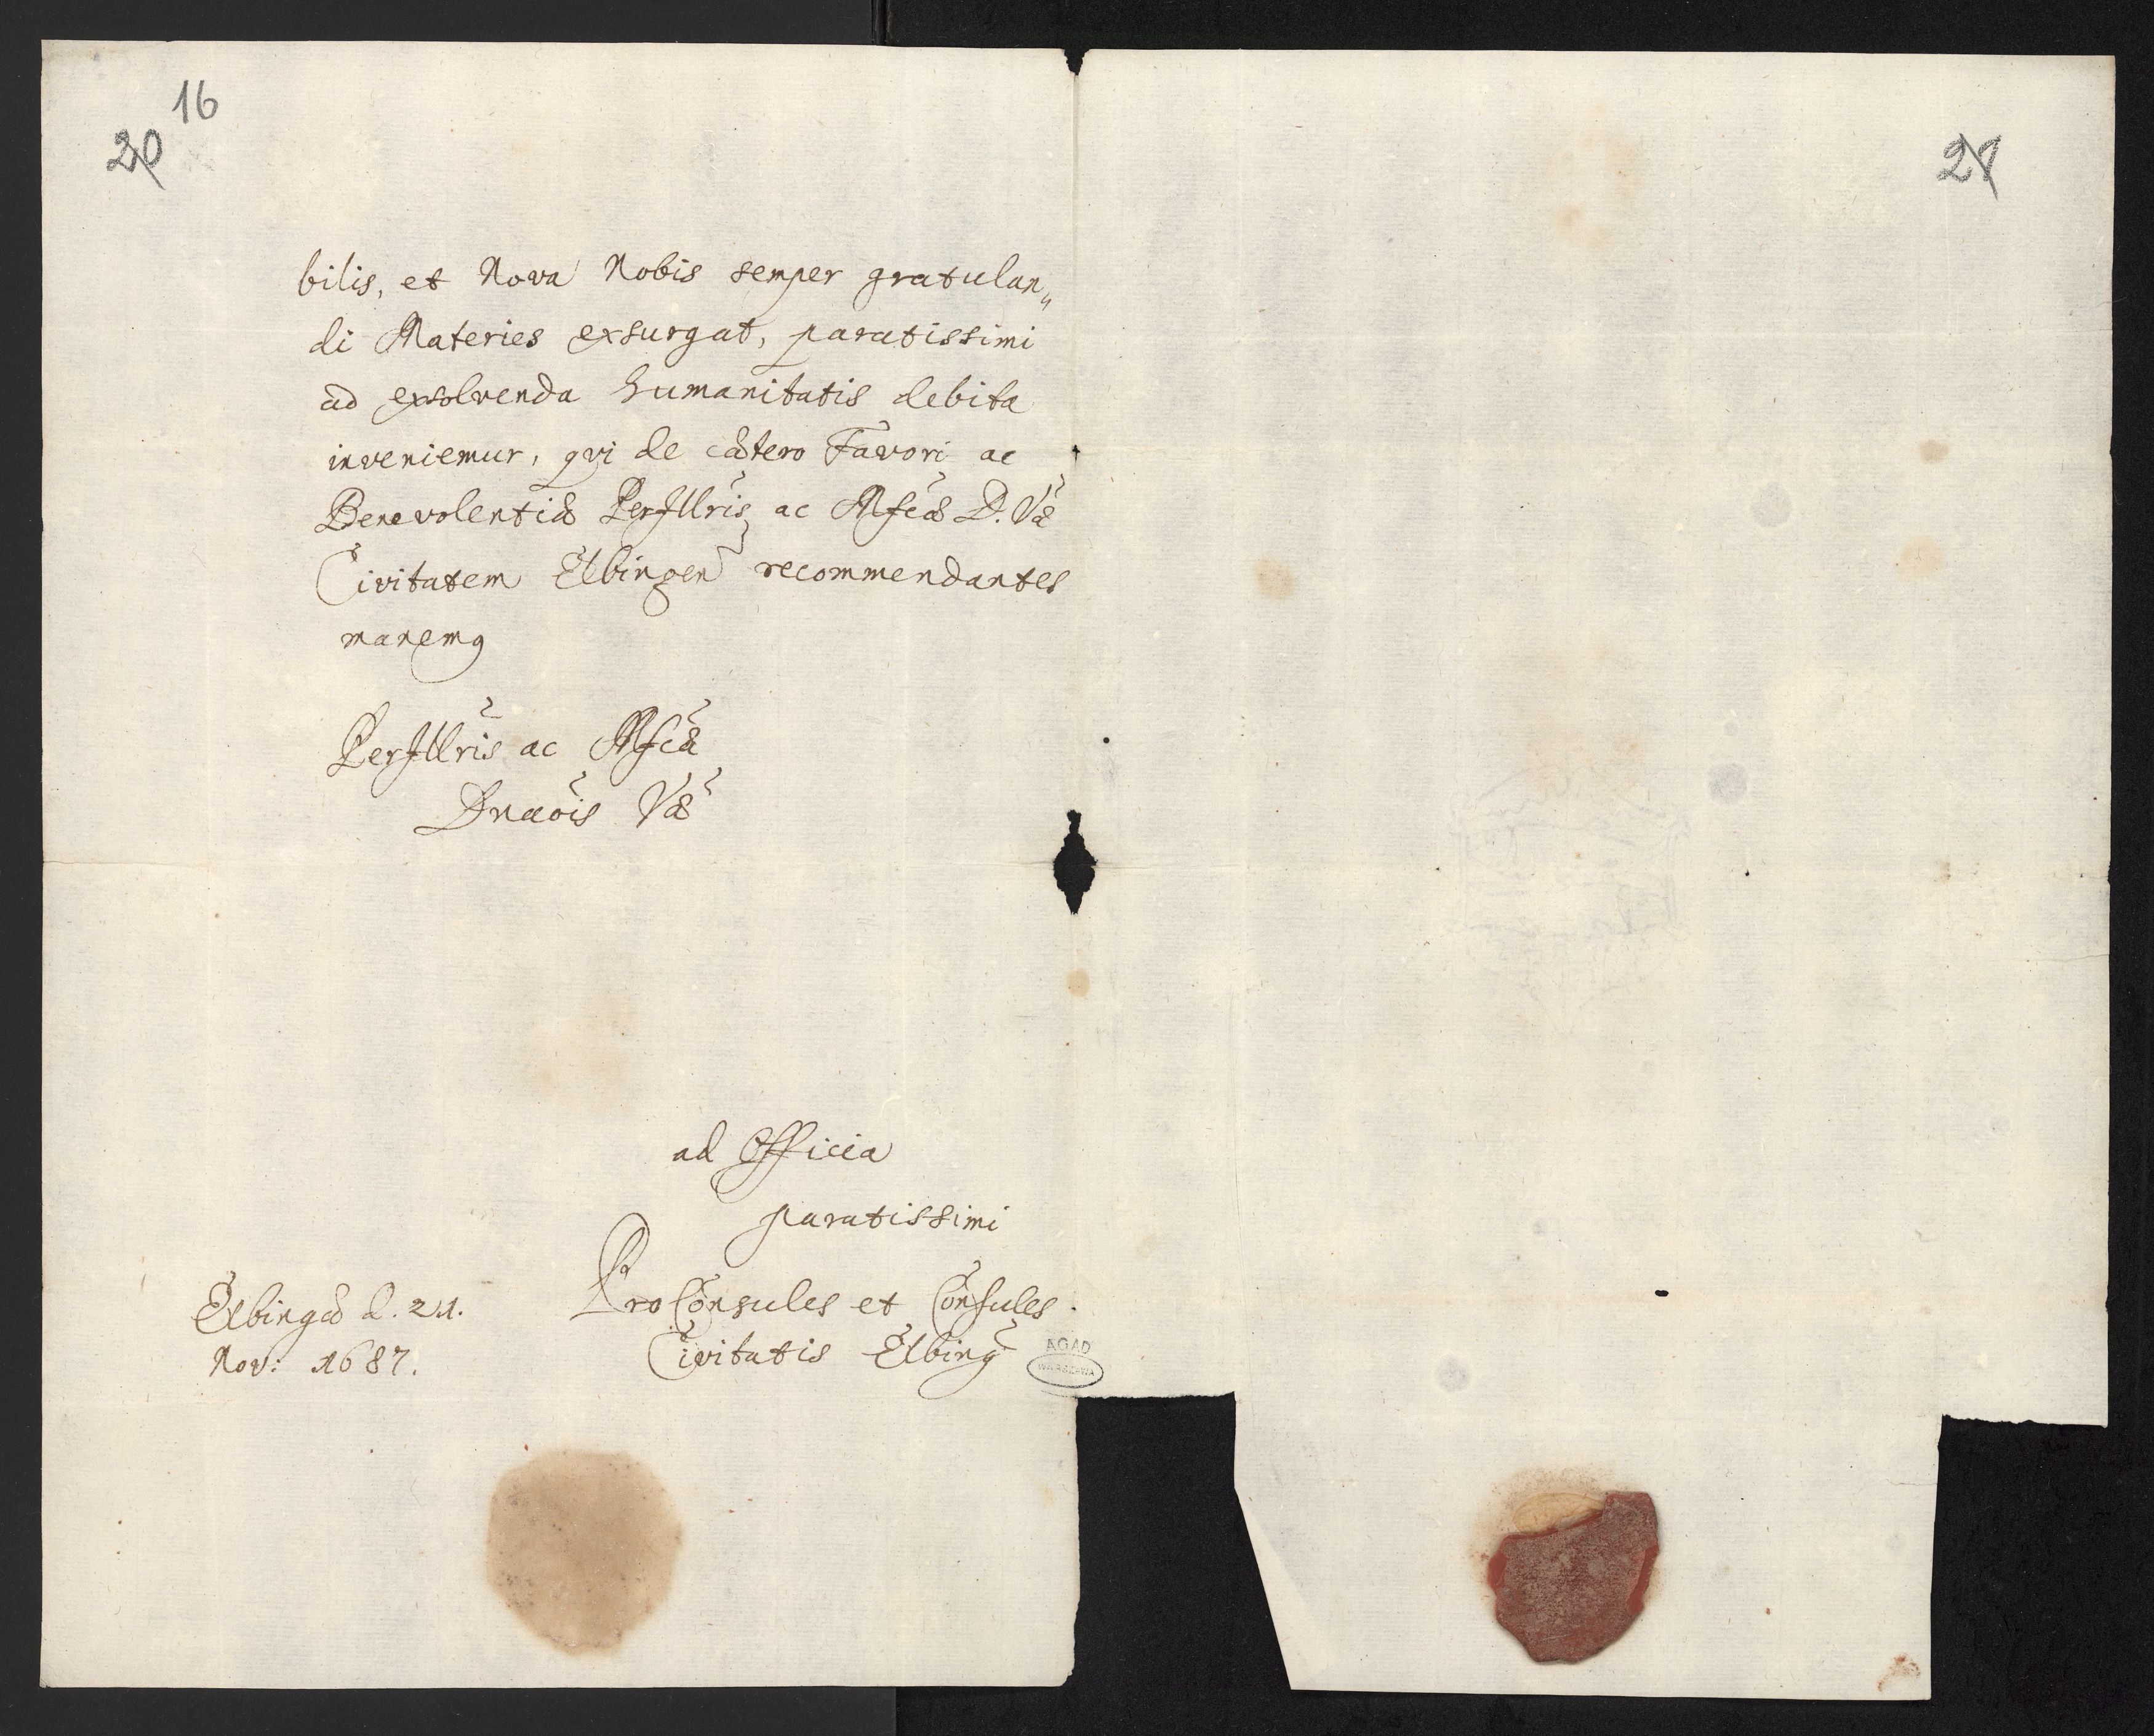 16
20
21
bilis, et Nova Nobis semper gratulan„
di Materies exsurgat, paratissimi
ad exsolvenda humanitatis debita
inveniemur, qvi de cætero Favori ac
Benevolentiæ PerIllris ac Mfcæ D. Væ
Civitatem Elbingen recommendantes
manemq
PerIllris ac Mfcæ
Dnaõis Væ
ad Officia
paratissimi
ProConsules et Consules
Civitatis Elbing
Elbingæ d. 21.
Nov: 1687.
AGAD
WARSZAWA